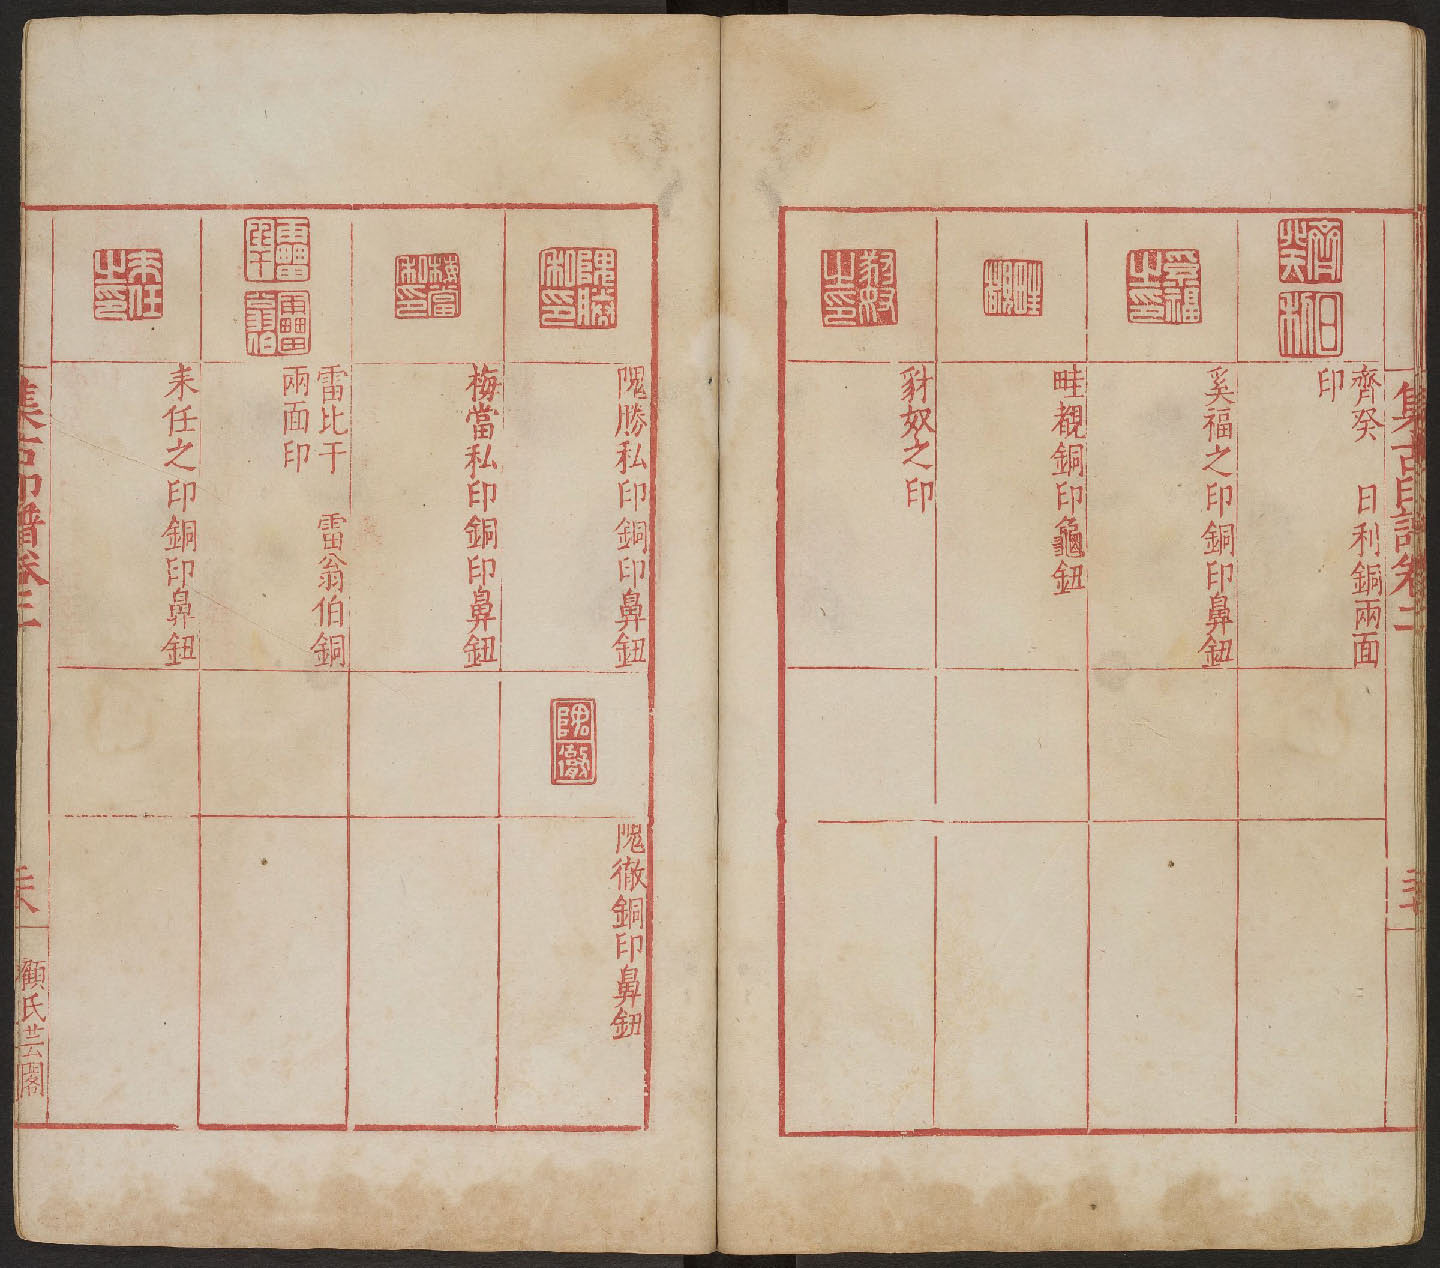 集古印譜卷二
齊癸　日利銅兩面
印
奚福之印銅印鼻鈕
畦覩銅印龜鈕
豺奴之印
隗勝私印銅印鼻鈕
隗徹銅印鼻鈕
梅當私印銅印鼻鈕
雷比干　雷翁伯銅
兩面印
耒任之印銅印鼻鈕
集古印譜卷二
顧氏芸閣